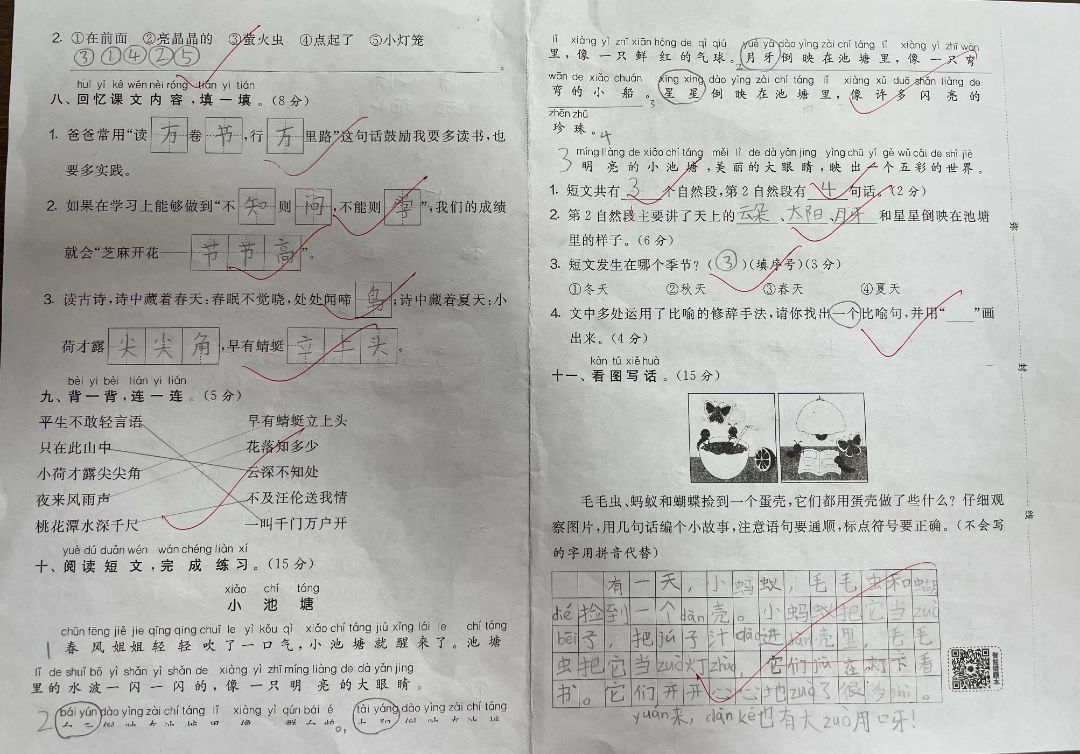 2. ①在前面 ②亮晶晶的 ③萤火虫 ④点起了 ⑤小灯笼
③①④②⑤。
huí yì kè wén nèi róng tián yi tián
八、回忆课文内容,填一填。(8分)
1. 爸爸常用“读万卷书,行万里路”这句话鼓励我要多读书,也
要多实践。
2. 如果在学习上能够做到“不知则问,不能则学”,我们的成绩
就会“芝麻开花——节节高”。
3. 读古诗,诗中藏着春天:春眠不觉晓,处处闻啼鸟;诗中藏着夏天:小
荷才露尖尖角,早有蜻蜓立上头。
bèi yi bèi lián yi lián
九、背一背,连一连。(5分)
平生不敢轻言语 早有蜻蜓立上头
只在此山中 花落知多少
小荷才露尖尖角 云深不知处
夜来风雨声 不及汪伦送我情
桃花潭水深千尺 一叫千门万户开
yuè dú duǎn wén wán chéng liàn xí
十、阅读短文,完成练习。(15分)
xiǎo chí táng
小池塘
chūn fēng jiě jie qīng qīng chuī le yì kǒu qì xiǎo chí táng jiù xǐng lái le chí táng
1 春风姐姐轻轻吹了一口气,小池塘就醒来了。池塘
lǐ de shuǐ bō yì shǎn yì shǎn de xiàng yì zhī míng liàng de dà yǎn jing
里的水波一闪一闪的,像一只明亮的大眼睛。
2 bái yún dào yìng zài chí táng lǐ xiàng yì qún bái é tài yáng dào yìng zài chí táng
白云倒映在池塘里,像一群白鹅。太阳倒映在池塘
lǐ xiàng yì zhī xiān hóng de qì qiú yuè yá dào yìng zài chí táng lǐ xiàng yì zhī wān
里,像一只鲜红的气球。2月牙倒映在池塘里,像一只弯
wān de xiǎo chuán xīng xing dào yìng zài chí táng lǐ xiàng xǔ duō shǎn liàng de
弯的小船。3星星倒映在池塘里,像许多闪亮的
zhēn zhū
珍珠。4
míng liàng de xiǎo chí táng měi lì de dà yǎn jing yìng chū yí gè wǔ cǎi de shì jiè
3 明亮的小池塘,美丽的大眼睛,映出一个五彩的世界。
1. 短文共有3个自然段,第2自然段有4句话。(2分)
2. 第2自然段主要讲了天上的云朵、太阳、月牙和星星倒映在池塘
里的样子。(6分)
3. 短文发生在哪个季节?(③)(填序号)(3分)
①冬天 ②秋天 ③春天 ④夏天
4. 文中多处运用了比喻的修辞手法,请你找出一个比喻句,并用“____”画
出来。(4分)
kàn tú xiě huà
十一、看图写话。(15分)
毛毛虫、蚂蚁和蝴蝶捡到一个蛋壳,它们都用蛋壳做了些什么?仔细观
察图片,用几句话编个小故事,注意语句要通顺,标点符号要正确。(不会写
的字用拼音代替)
有一天,小蚂蚁,毛毛虫和蝴
dié捡到一个dàn壳。小蚂蚁把它当zuò
bēi子,把jú子汁dào进dàn壳里,毛毛
虫把它当zuò灯zhào,它们jù在灯下看
书。它们开开心心地zuò了很多shì。
yuán来,dàn ké也有大zuò用呀!
密
封
线